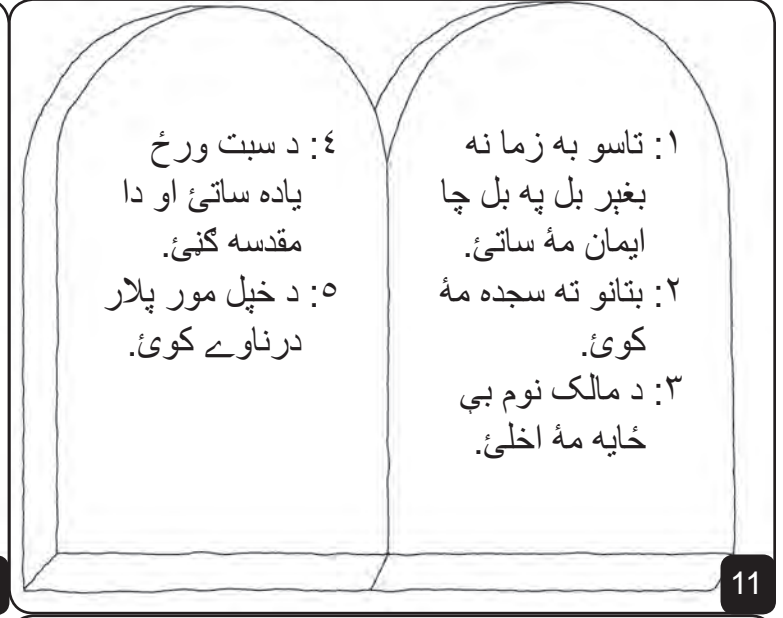 ١: تاسو به زما نه
بغېر بل په بل چا
ايمان مۀ ساتئ.
٢: بتانو ته سجده مۀ
کوئ.
٣: د مالک نوم بې
ځايه مۀ اخلئ.
٤: د سبت ورځ
ياده ساتئ او دا
مقدسه ګڼئ.
٥: د خپل مور پلار
درناوے کوئ.
11